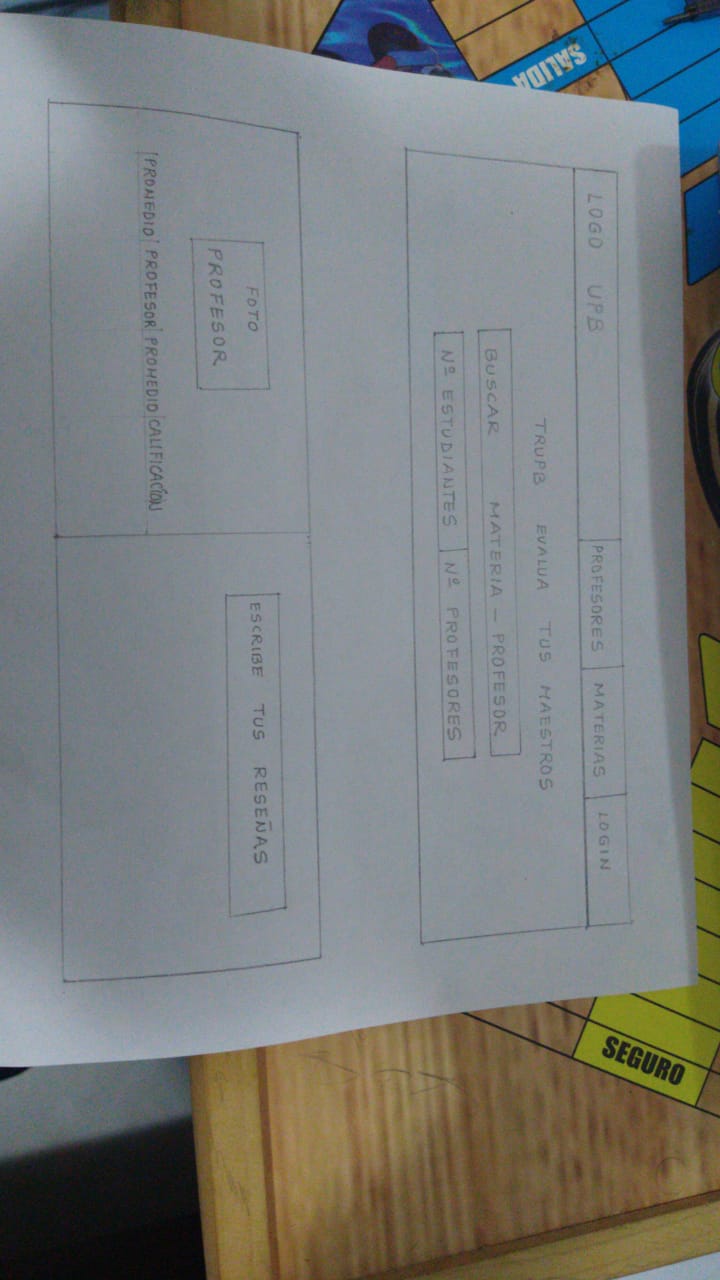 SALIDA
LOGO UPB PROFESORES MATERIAS LOGIN
TRUPB EVALUA TUS MAESTROS
BUSCAR MATERIA - PROFESOR
Nº ESTUDIANTES Nº PROFESORES
FOTO
PROFESOR
PROMEDIO PROFESOR PROMEDIO CALIFICACIÓN
ESCRIBE TUS RESEÑAS
SEGURO